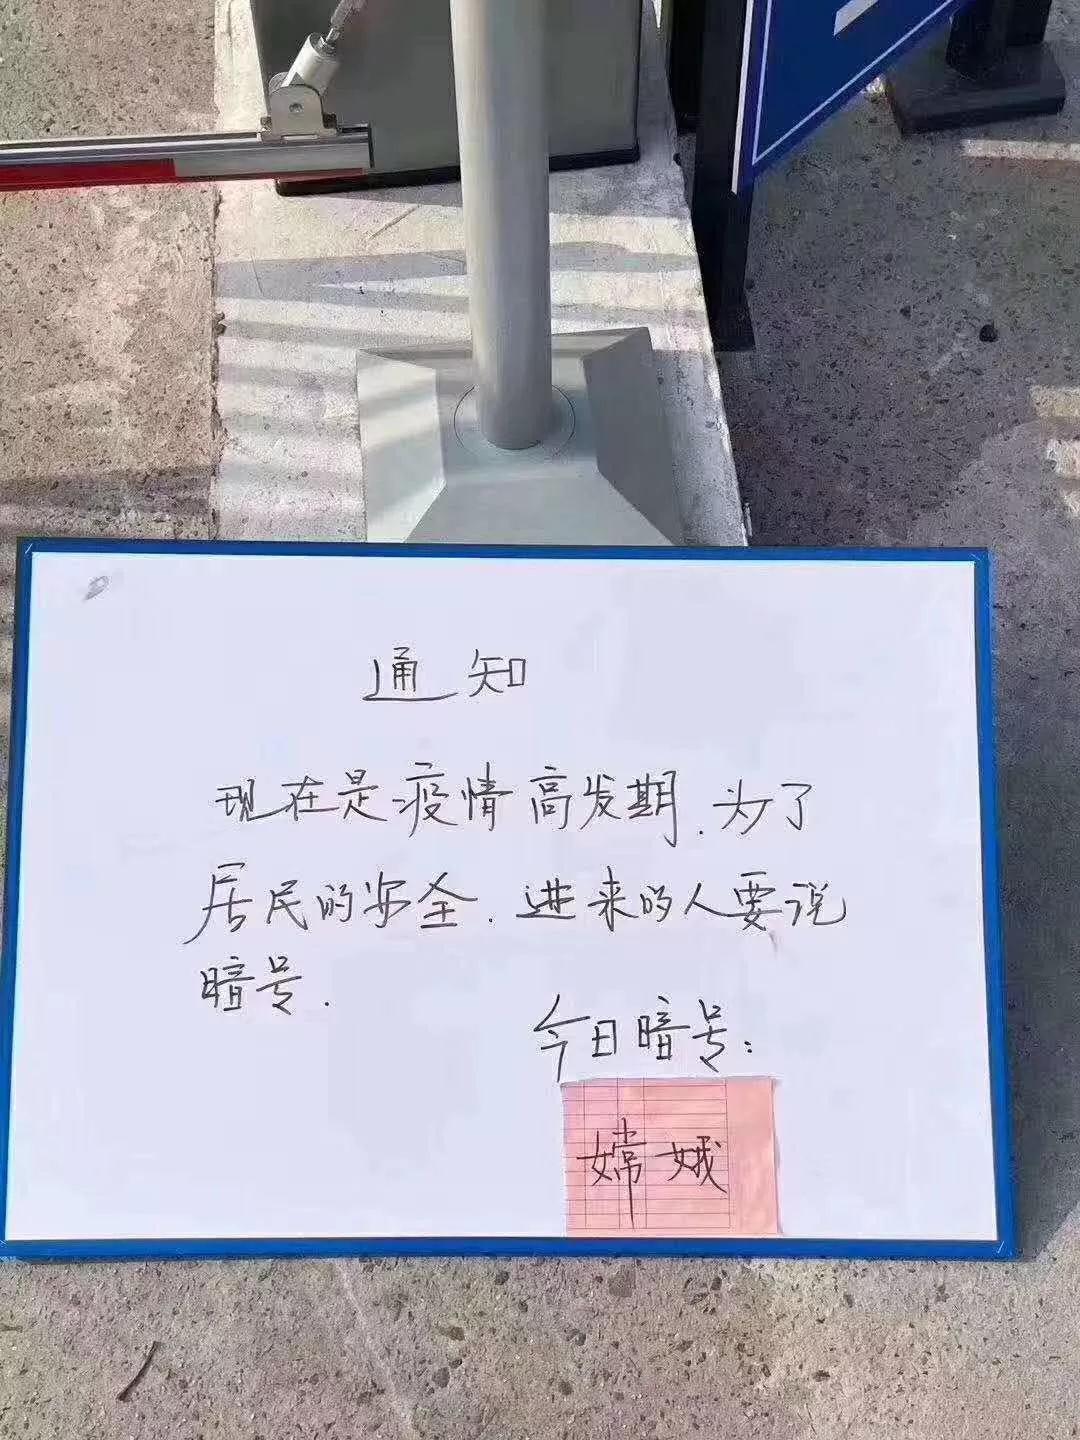 通知
现在是疫情高发期.为了
居民的安全.进来的人要说
暗号.
今日暗号:
嫦娥